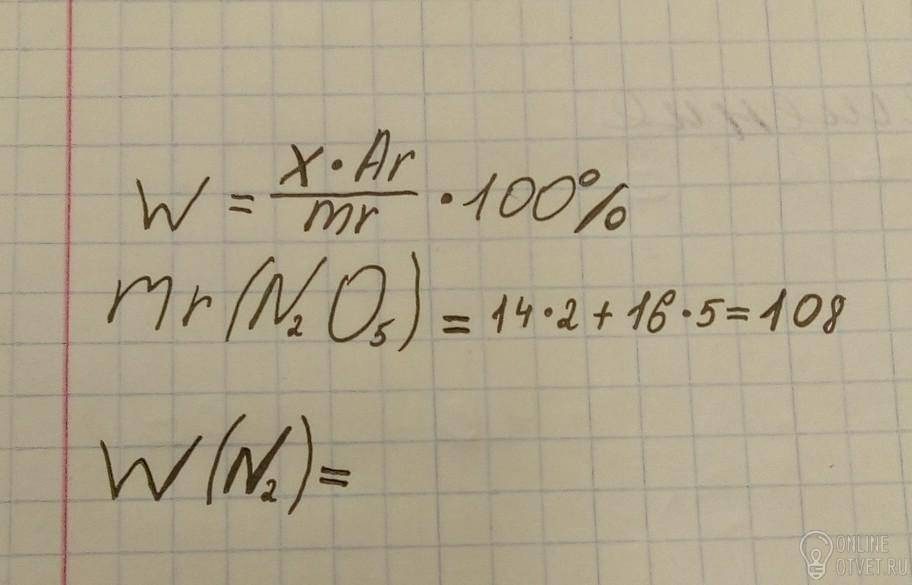 W = x·Ar/mr ·100%
Mr(N₂O₅) = 14·2+16·5=108
W(N₂)=
ONLINE
OTVET.RU